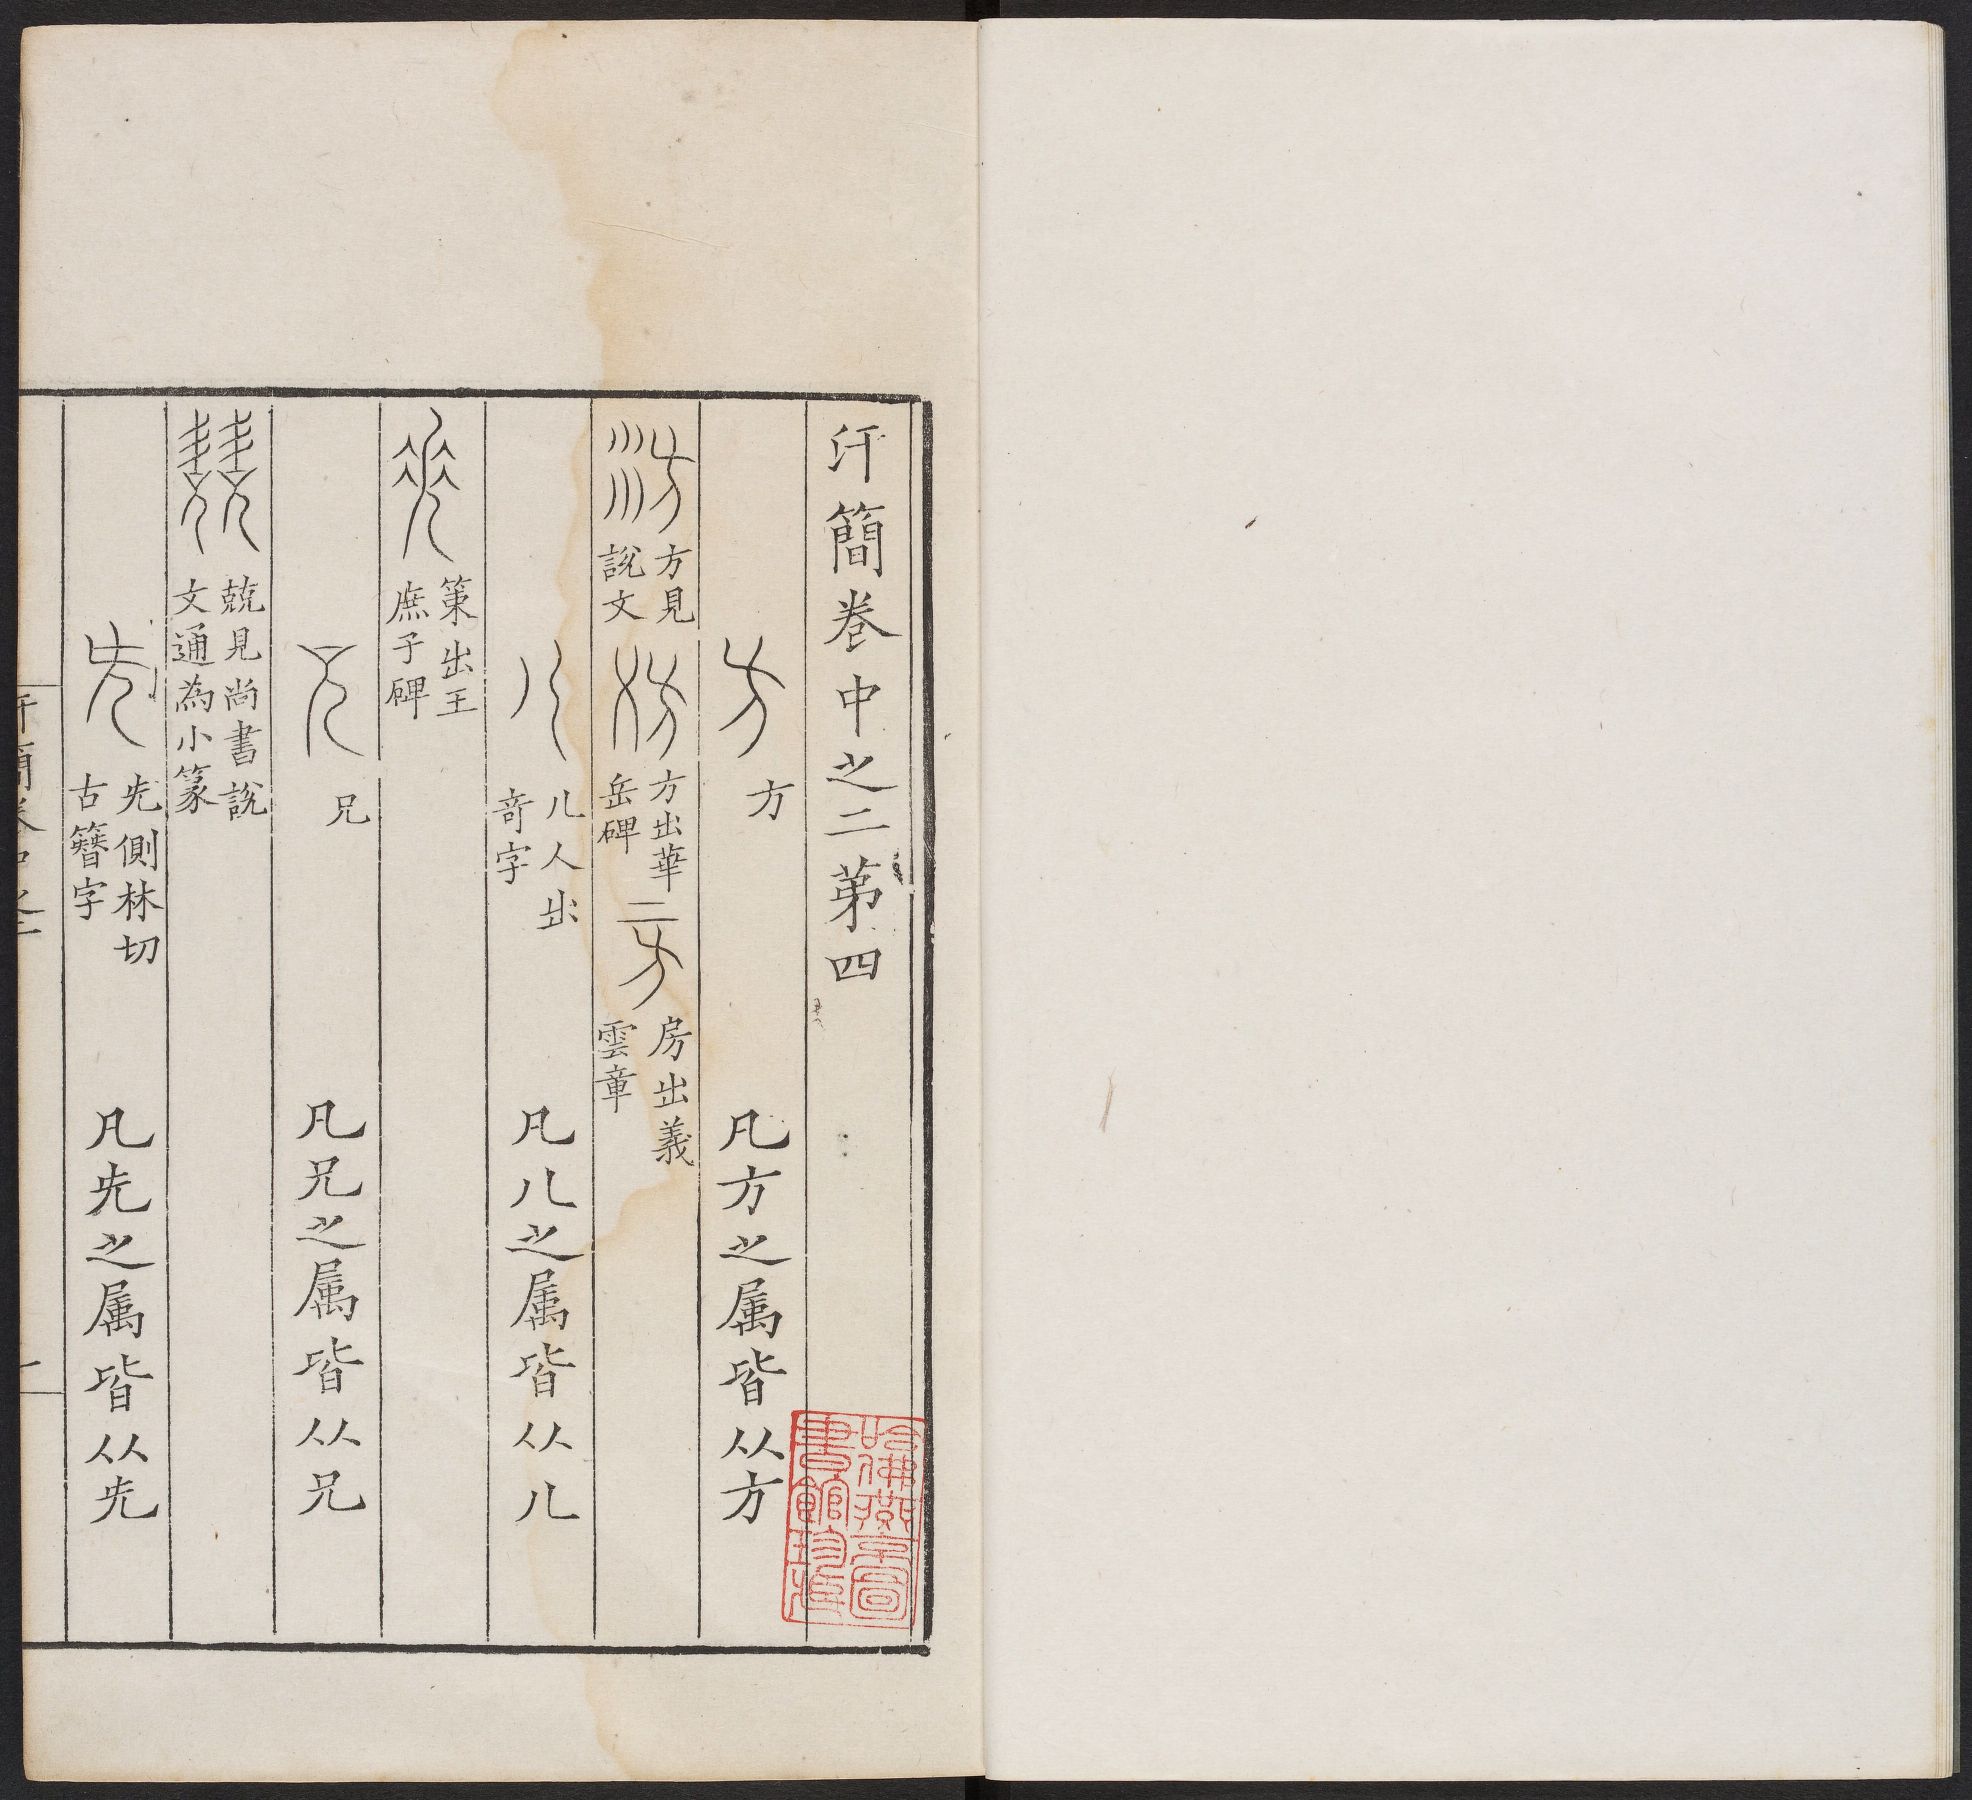 汗簡卷中之二第四
方 凡方之属皆从方
方見說文 方出華岳碑 房出義雲章
儿人出奇字 凡儿之属皆从儿
策出王庶子碑
兄 凡兄之属皆从兄
兢見尚書說文通為小篆
兂側林切古簪字 凡兂之属皆从兂
哈佛燕京圖書館珍藏